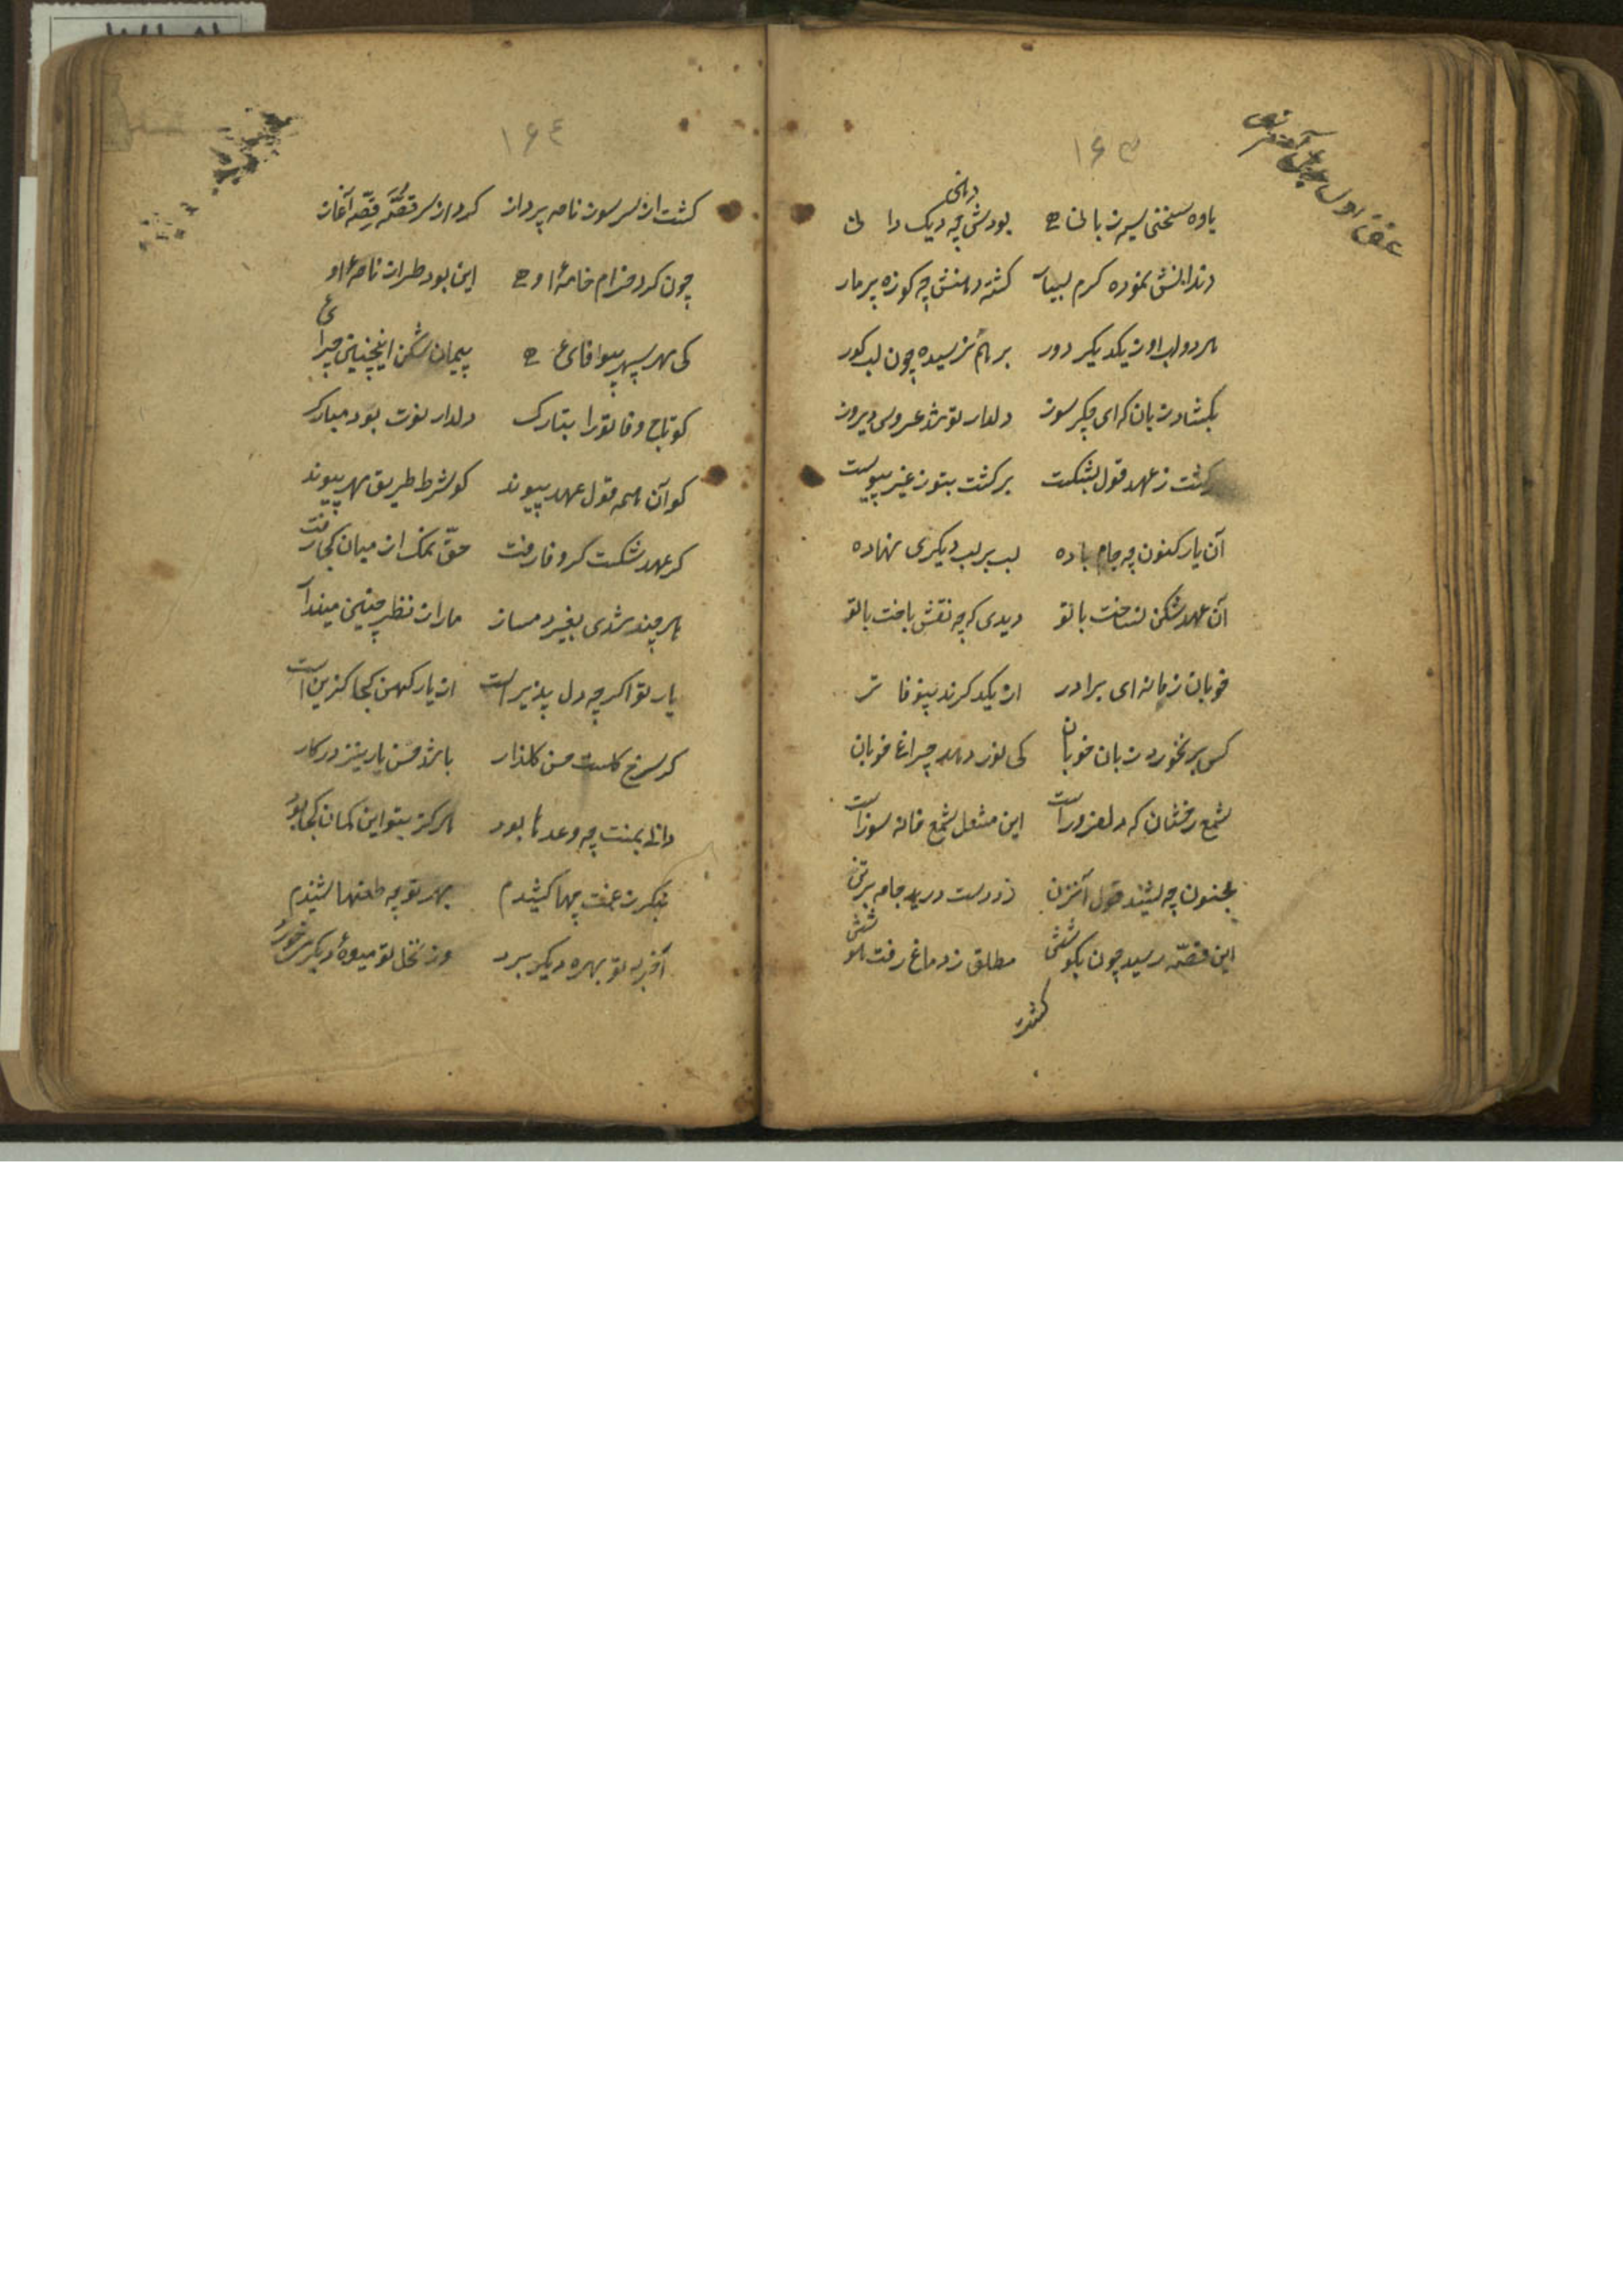 ۱۶۳
یاوه سخنی سیه زبانی بودش چه دیک دهانی
دندانش نموده کرم بسیار کشته دهنش چه کوزه پر مار
هر دو لب او ز یکدیکر دور بر هم نرسیده چون لب کور
بکشاد زبان که ای جکر سوز دلدار تو شد عروس دیروز
برکشت ز عهد قول بشکست برکشت بتو ز غیر پیوست
آن یار کنون چه جام باده لب بر لب دیکری نهاده
آن عهد شکن نساخت با تو دیدی که چه نقش باخت با تو
خوبان زمانه ای برادر از یکدکرند بیوفا تر
کس بر نخورد زبان خوبان کی نور دهد چراغ خوبان
شمع رخشان که دلفروز است این مشعل شمع خانه سوز است
مجنون چه شنید قول آنزن زد دست درید جامه بر تن
این قصه رسید چون بکوشش مطلق ز دماغ رفت هوشش
کشت
۱۶٤
کشت از سر سوز نامه پرداز کرد از سر قصه قصه آغاز
چون کرد خرام خامهٔ او این بود طراز نامهٔ او
کی مهر سپهر بیوفائی پیمان شکن اینچنین چرائی
کو تاج وفا تو را بتارک دلدار نوت بود مبارک
کو آن همه قول عهد پیوند کو شرط طریق مهر پیوند
کر عهد شکست کر وفا رفت حق نمک از میان کجا رفت
هر چند شدی بغیر دمساز ما را ز نظر چنین مینداز
یار تو اکر چه دل پذیر است از یار کهن کجا کزیر است
کر سرخ کلست حسن کلذار باشد خس یار نیز در کار
دانی بمنت چه وعدها بود هرکز بتو این کمان کجا بود
بنکر ز غمت چها کشیدم بهر تو چه طعنها شنیدم
آخر ز تو بهره دیکر برد وز نخل تو میوهٔ دیکری خورد